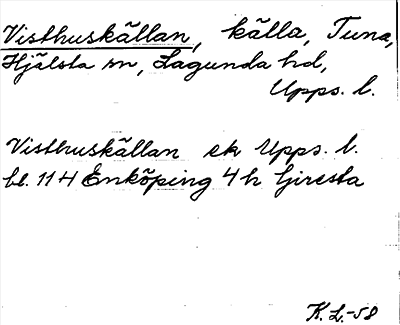 Visthuskällan, källa, Tuna,
Hjälsta sn, Lagunda hd,
Upps. l.
Visthuskällan ek Upps. l.
bl. 114 Enköping 4 h Giresta
K. L. -58